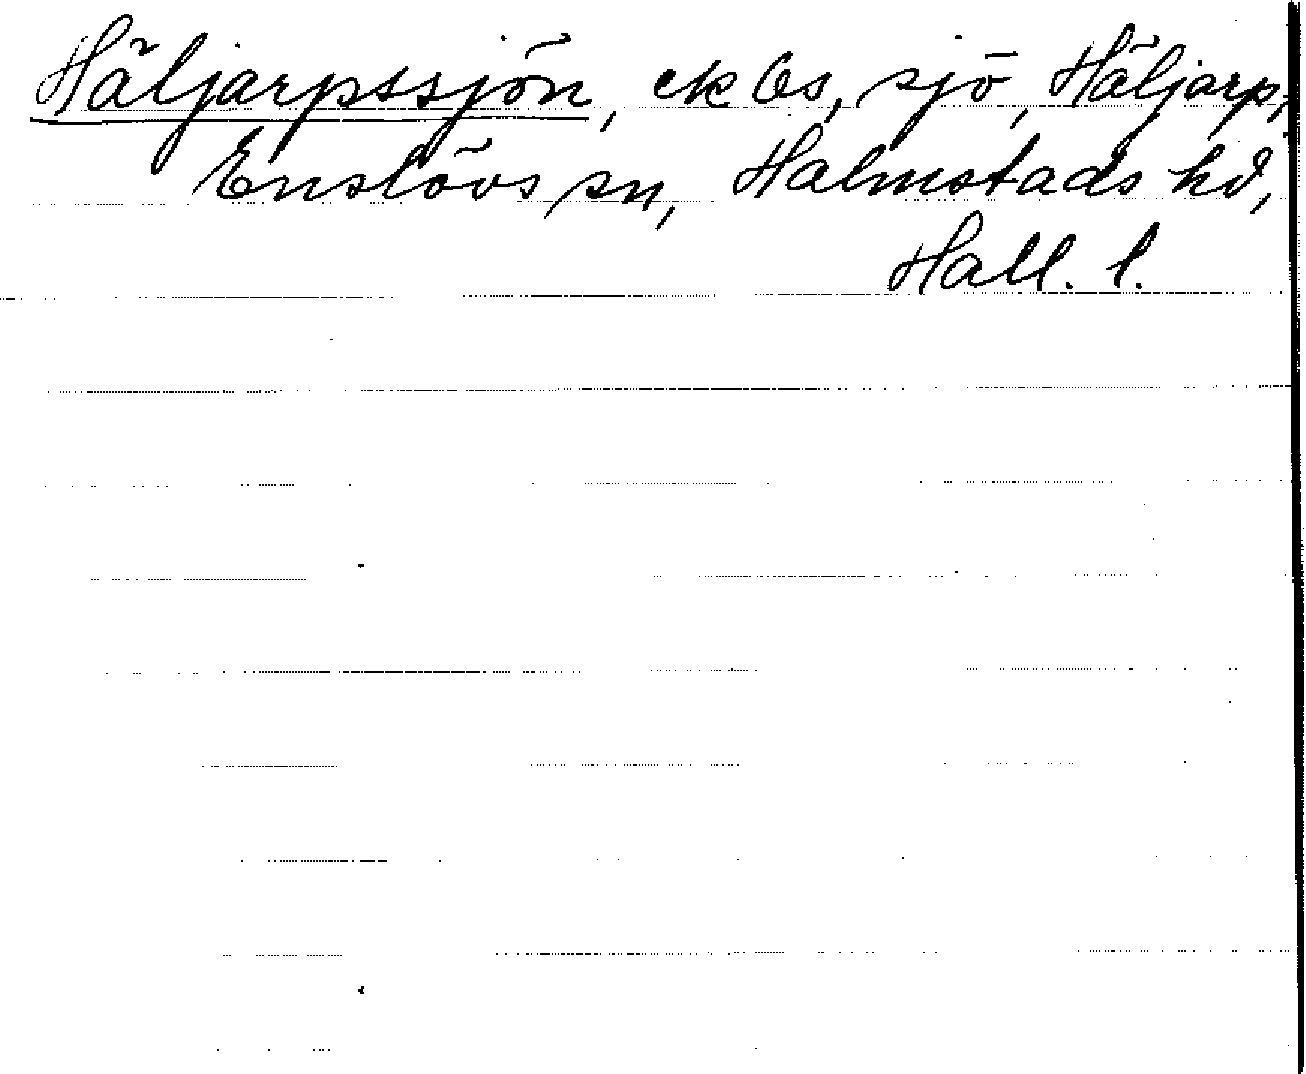 Häljarpssjön, ek bs, sjö, Häljarp,
Enslövs sn, Halmstads hd,
Hall. l.